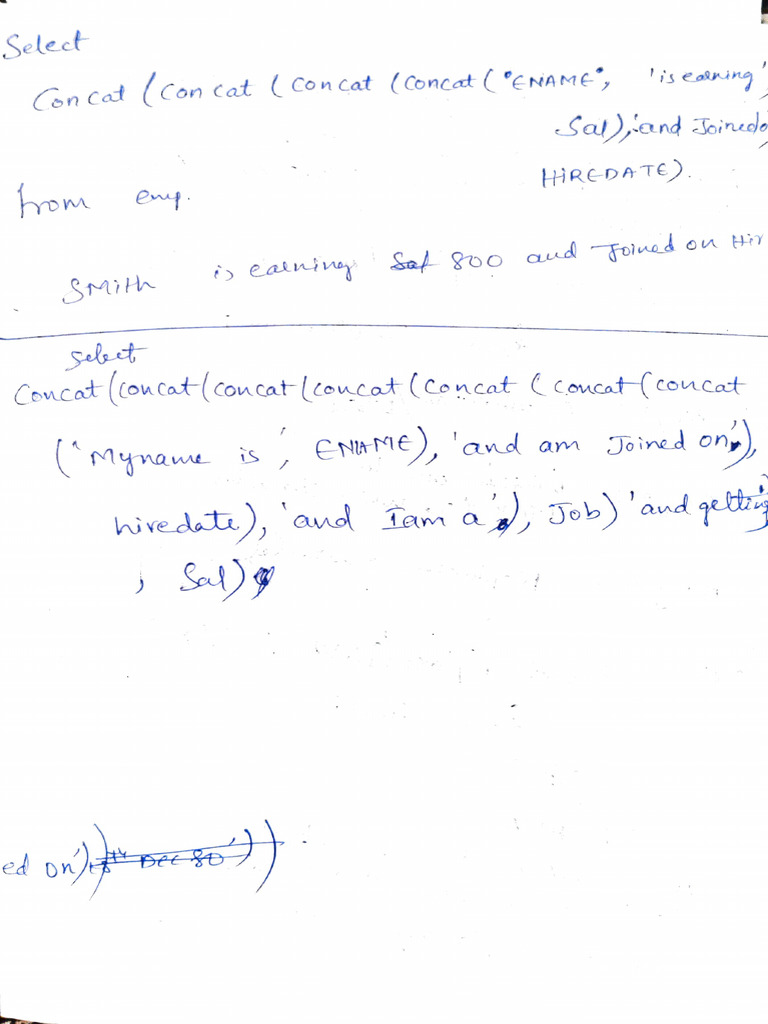 Select
Concat (Concat (Concat (Concat ("ENAME", 'is earning'
Sal), 'and Joined
HIREDATE).
from emp.
SMith is earning 800 and Joined on Hir
Select
Concat (concat (concat (concat (Concat (concat (concat
('Myname is', ENAME), 'and am Joined on'),
hiredate), 'and Iam a'), Job) 'and getting
, Sal)
ed on') DEC 80'))